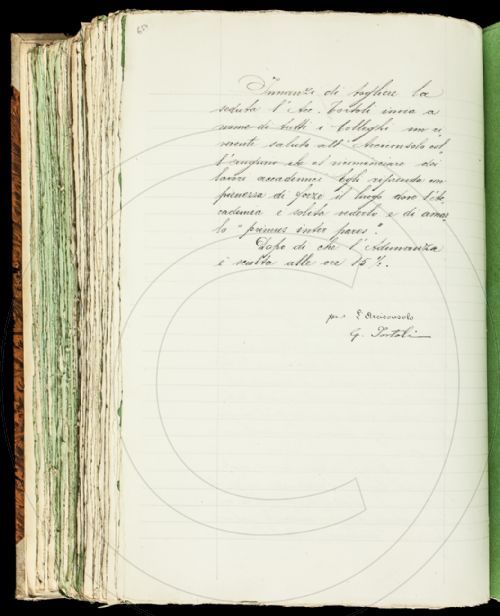 Innanzi di togliere la
seduta l'Acc. Tortoli invia a
nome di tutti i Colleghi un ri
verente saluto all'Arciconsolo col
l'augurio che al ricominciare dei
lavori accademici Egli riprenda in
pienezza di forze il luogo dove l'Ac
cademia è solita vederlo e di amar
lo "primus inter pares".
Dopo di che l'Adunanza
è sciolta alle ore 15 ½.
per L'Arciconsolo
G. Tortoli